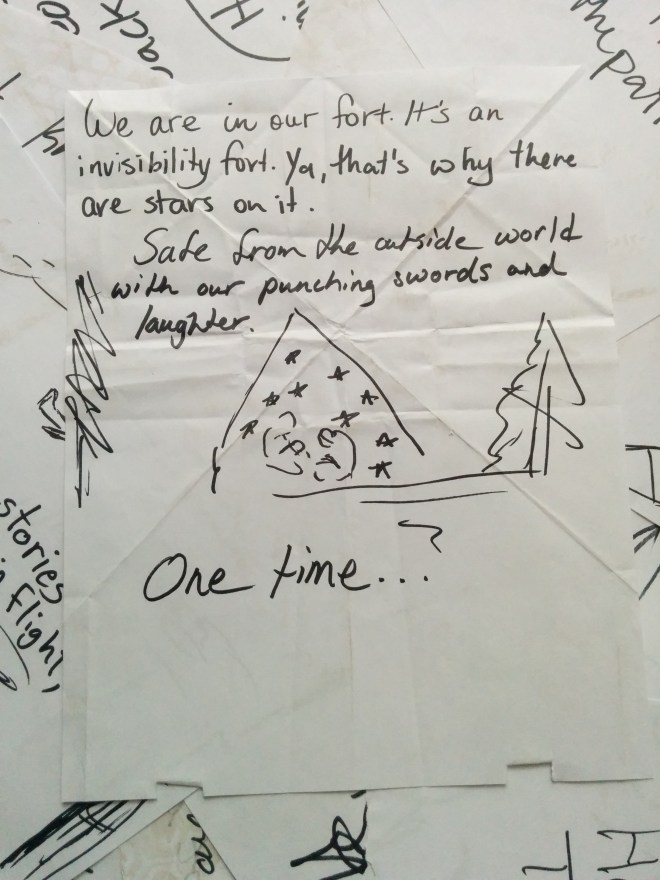 We are in our fort. It's an
invisibility fort. Ya, that's why there
are stars on it.
Safe from the outside world
with our punching swords and
laughter.
One time...
stories
Flight,